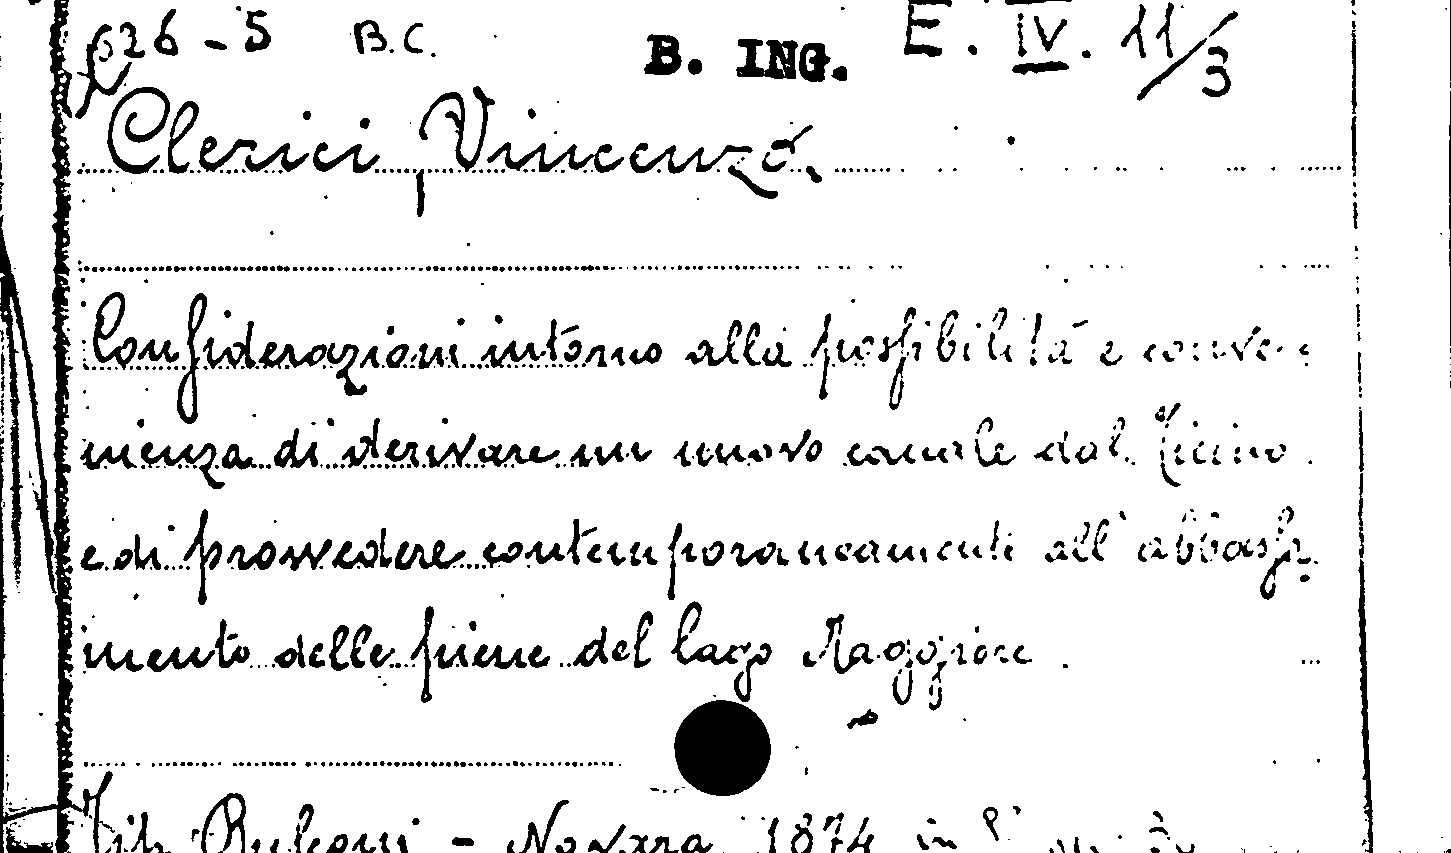 626-5 B.C. B. ING. E. IV. 11/3
Clerici, Vincenzo.
Considerazioni intorno alla possibilità e conve-
nienza di derivare un nuovo canale dal Ticino
e di provvedere contemporaneamente all'abbassa-
mento delle piene del lago Maggiore
Tip. Rusconi - Novara 1874 in 8°